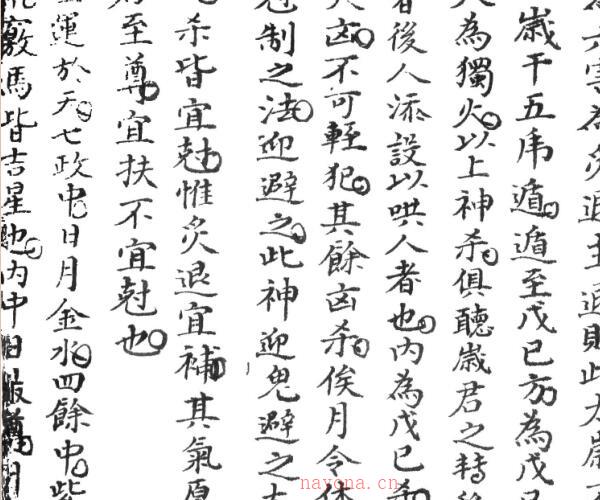 為灸退主退則此太歲
歲干五虎遁遁至戊己方為戊己
為獨火以上神杀俱聽歲君之轉
者後人添設以哄人者也内為戊己杀
凶不可輕犯其餘凶杀俟月令休
尅制之法迎避之此神迎鬼避之
杀皆宜尅惟灸退宜補其氣原
至尊宜扶不宜尅也
運於天七政中日月金水四餘中紫
竅馬皆吉星也内中日最尊月
nayona.cn